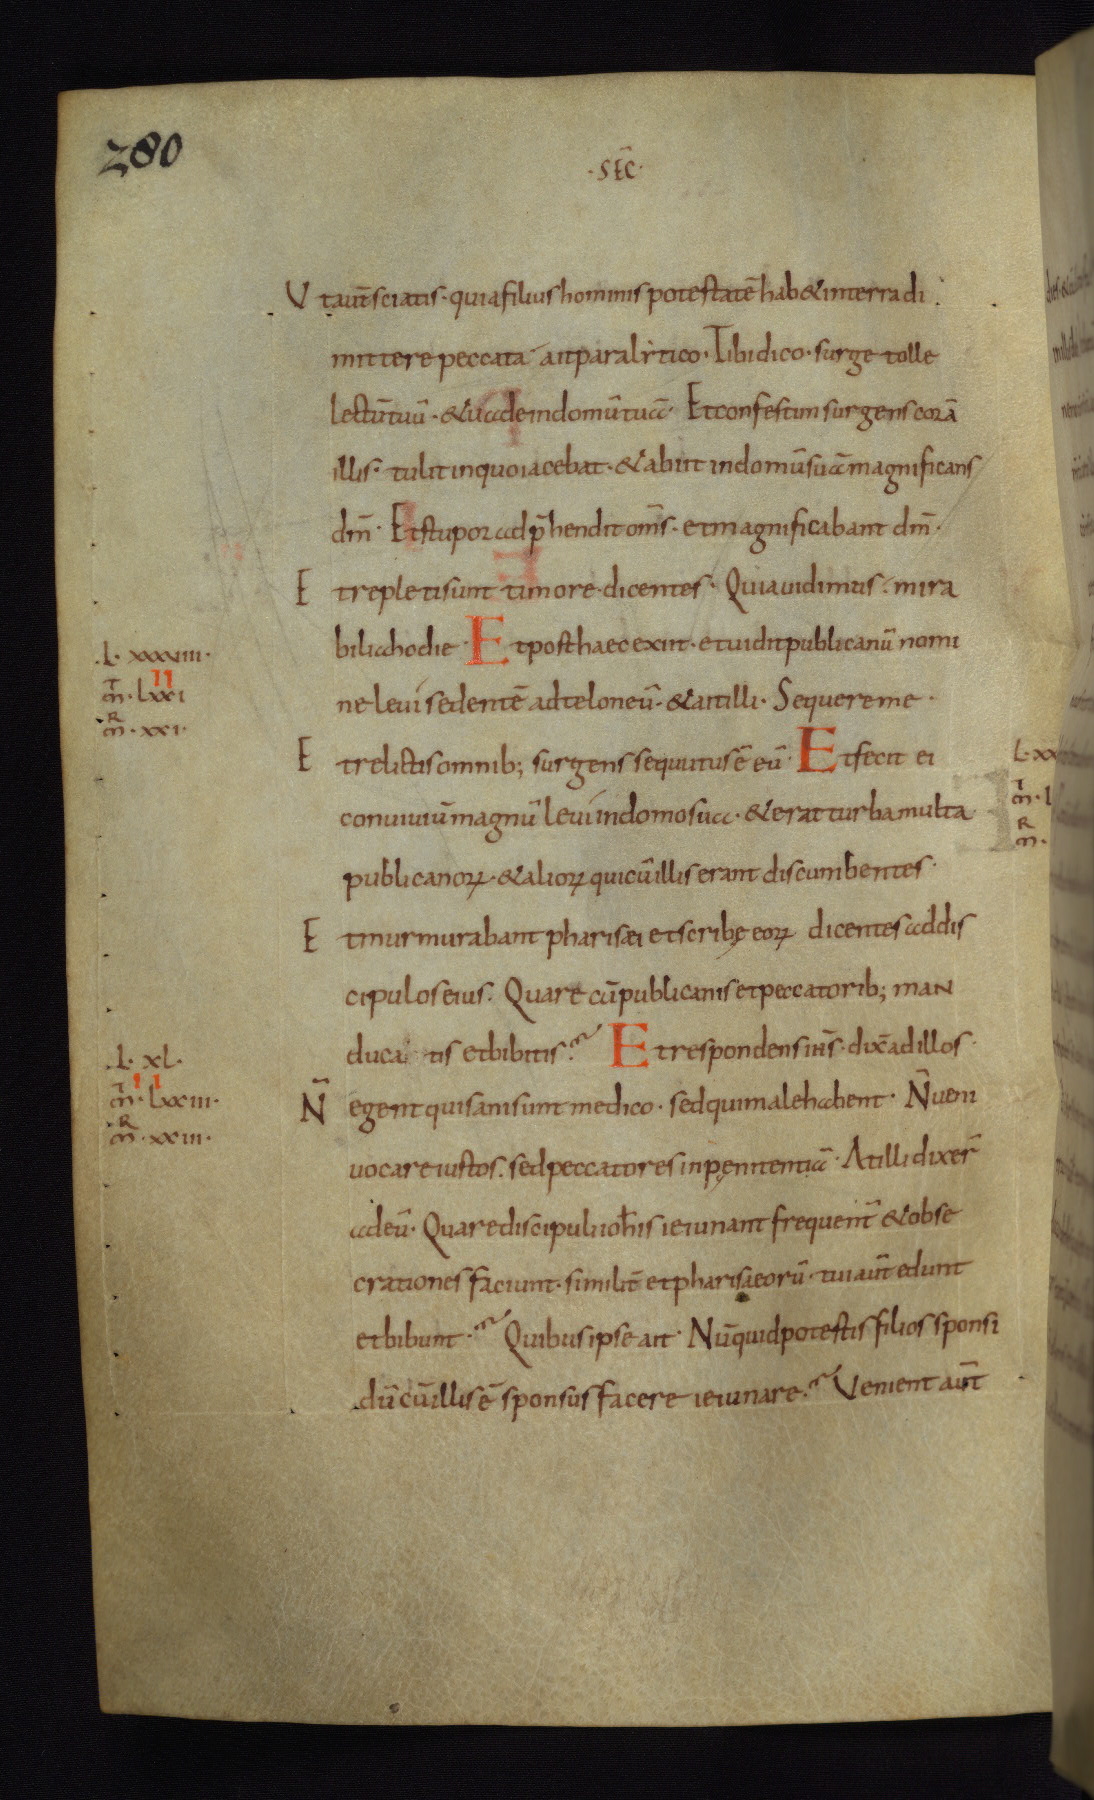 280
·SEC̄·
Ut aut̄ sciatis · quia filius hominis potestatē hab& in terra di
mittere peccata ait paralytico · Tibi dico · surge tolle
lectū tuū · & uade in domū tuā · Et confestim surgens corā
illis · tulit in quo iacebat · & abiit in domū suā magnificans
dm̄ · Et stupor adp̄hendit om̄s · et magnificabant dm̄ ·
Et repleti sunt timore · dicentes · Quia uidimus mira
bilia hodie · Et post haec exiit · et uidit publicanū nomi
ne leui sedentē ad teloneū · & ait illi · Sequere me ·
L · xxxxiii ·
m̄ · lxxi
m̄ · xxi ·
Et relictis omnib; surgens sequutus ē eū · Et fecit ei
conuiuiū magnū leui in domo sua · & erat turba multa
publicanoꝝ · & alioꝝ qui cū illis erant discumbentes ·
Et murmurabant pharisæi et scribę eoꝝ dicentes ad dis
cipulos eius · Quare cū publicanis et peccatorib; man
duca tis et bibitis · Et respondens ih̄s · dix̄ ad illos ·
L · xl ·
m̄ · lxxiii ·
m̄ · xxiii ·
N̄ egent qui sani sunt medico · sed qui male habent · N̄ ueni
uocare iustos · sed peccatores in pęnitentiā · At illi dixer̄
ad eū · Quare discipuli ioh̄is ieiunant frequent̄ & obse
crationes faciunt · similit̄ et pharisaeorū · tui aut̄ edunt
et bibunt · Quibus ipse ait · Nūquid potestis filios sponsi
dū cū illis ē sponsus facere ieiunare · Uenient aut̄